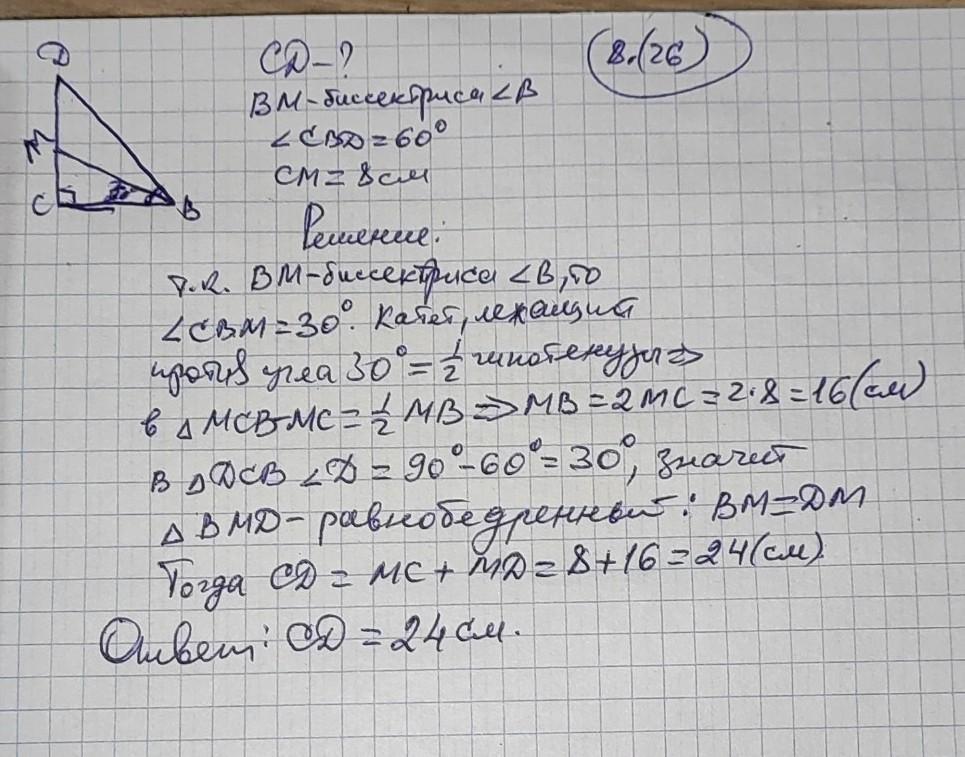 D
M
C
B
CD - ?
8.(26)
BM - биссектриса ∠B
∠CBD = 60°
CM = 8 см
Решение:
т.к. BM - биссектриса ∠B, то
∠CBM = 30°. Катет, лежащий
против угла 30° = 1/2 гипотенузы ⇒
в △ MCB MC = 1/2 MB ⇒ MB = 2MC = 2·8 = 16 (см)
В △DCB ∠D = 90° - 60° = 30°, значит
△ BMD - равнобедренный: BM = DM
Тогда CD = MC + MD = 8 + 16 = 24 (см)
Ответ: CD = 24 см.